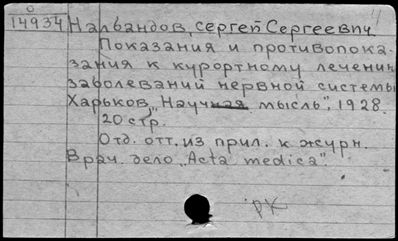 0
14934 Налбандов, Сергей Сергеевич
Показания и противопока-
зания к курортному лечению
заболеваний нервной системы
Харьков, "Научная мысль", 1928.
20 стр.
Отд. отт. из прил. к журн.
Врач. дело "Acta medica".
рк